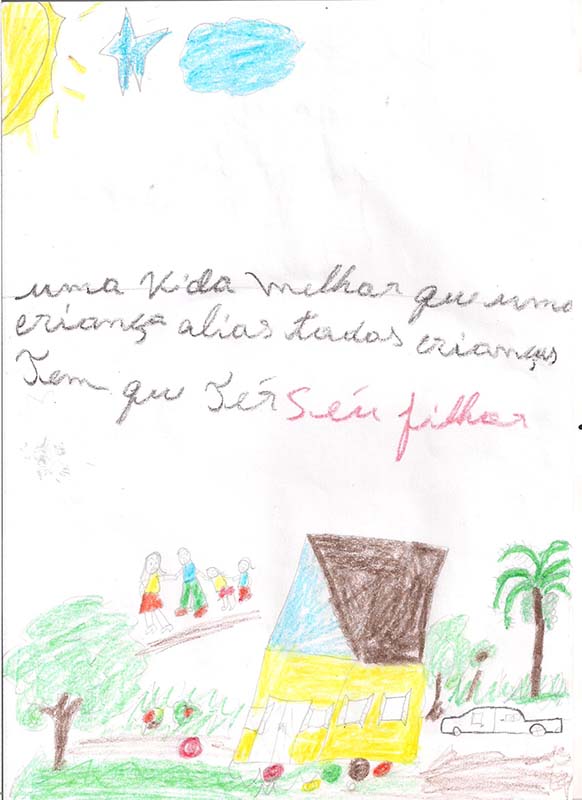 uma vida melhor que uma
criança alias todas crianças
Tem qu Tér Séu filhor